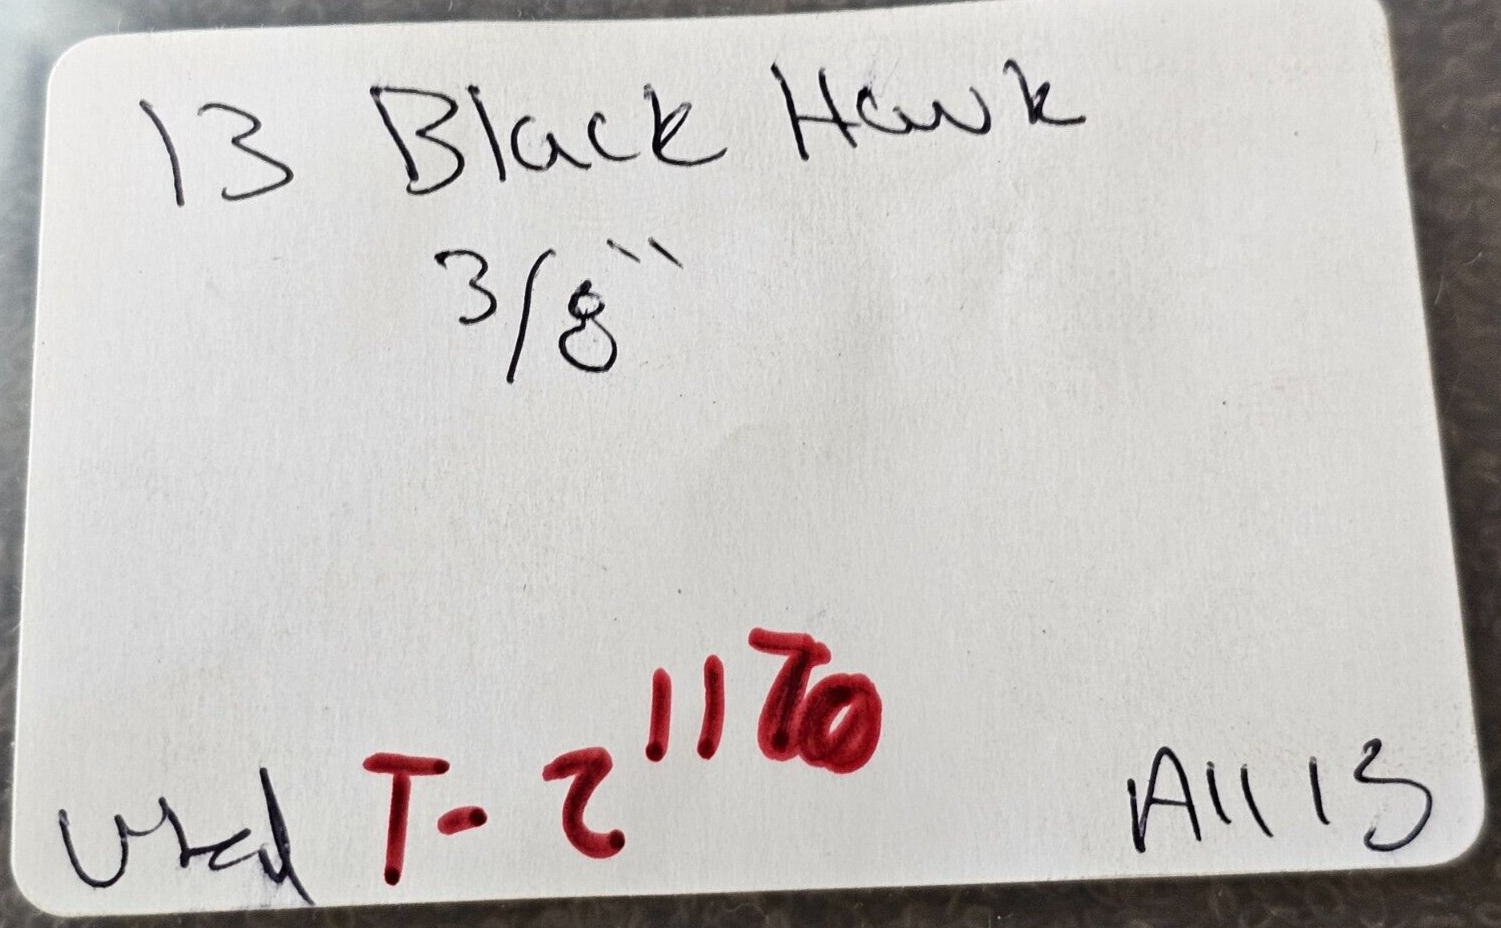 13 Black Hawk
3/8"
Used T-2 1170 All 13